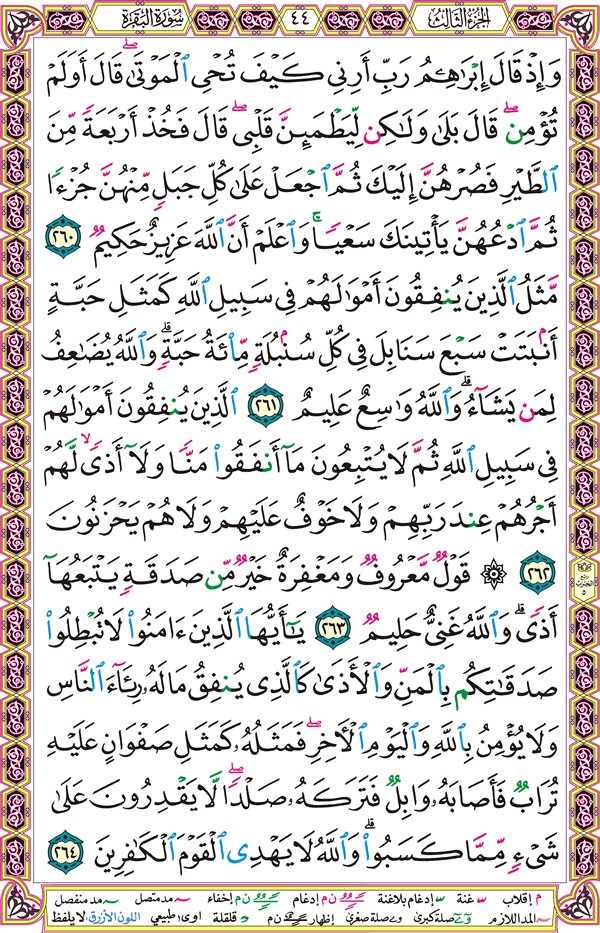 الجزء الثالث ٤٤ سورة البقرة
وَإِذْ قَالَ إِبْرَٰهِـۧمُ رَبِّ أَرِنِى كَيْفَ تُحْىِ ٱلْمَوْتَىٰ ۖ قَالَ أَوَلَمْ
تُؤْمِن ۖ قَالَ بَلَىٰ وَلَـٰكِن لِّيَطْمَئِنَّ قَلْبِى ۖ قَالَ فَخُذْ أَرْبَعَةً مِّنَ
ٱلطَّيْرِ فَصُرْهُنَّ إِلَيْكَ ثُمَّ ٱجْعَلْ عَلَىٰ كُلِّ جَبَلٍ مِّنْهُنَّ جُزْءًا
ثُمَّ ٱدْعُهُنَّ يَأْتِينَكَ سَعْيًا ۚ وَٱعْلَمْ أَنَّ ٱللَّهَ عَزِيزٌ حَكِيمٌ ٢٦٠
مَّثَلُ ٱلَّذِينَ يُنفِقُونَ أَمْوَٰلَهُمْ فِى سَبِيلِ ٱللَّهِ كَمَثَلِ حَبَّةٍ
أَنۢبَتَتْ سَبْعَ سَنَابِلَ فِى كُلِّ سُنۢبُلَةٍ مِّا۟ئَةُ حَبَّةٍ ۗ وَٱللَّهُ يُضَـٰعِفُ
لِمَن يَشَآءُ ۗ وَٱللَّهُ وَٰسِعٌ عَلِيمٌ ٢٦١ ٱلَّذِينَ يُنفِقُونَ أَمْوَٰلَهُمْ
فِى سَبِيلِ ٱللَّهِ ثُمَّ لَا يُتْبِعُونَ مَآ أَنفَقُوا۟ مَنًّا وَلَآ أَذًى ۙ لَّهُمْ
أَجْرُهُمْ عِندَ رَبِّهِمْ وَلَا خَوْفٌ عَلَيْهِمْ وَلَا هُمْ يَحْزَنُونَ
٢٦٢ ۞ قَوْلٌ مَّعْرُوفٌ وَمَغْفِرَةٌ خَيْرٌ مِّن صَدَقَةٍ يَتْبَعُهَآ
أَذًى ۗ وَٱللَّهُ غَنِىٌّ حَلِيمٌ ٢٦٣ يَـٰٓأَيُّهَا ٱلَّذِينَ ءَامَنُوا۟ لَا تُبْطِلُوا۟
صَدَقَـٰتِكُم بِٱلْمَنِّ وَٱلْأَذَىٰ كَٱلَّذِى يُنفِقُ مَالَهُۥ رِئَآءَ ٱلنَّاسِ
وَلَا يُؤْمِنُ بِٱللَّهِ وَٱلْيَوْمِ ٱلْـَٔاخِرِ ۖ فَمَثَلُهُۥ كَمَثَلِ صَفْوَانٍ عَلَيْهِ
تُرَابٌ فَأَصَابَهُۥ وَابِلٌ فَتَرَكَهُۥ صَلْدًا ۖ لَّا يَقْدِرُونَ عَلَىٰ
شَىْءٍ مِّمَّا كَسَبُوا۟ ۗ وَٱللَّهُ لَا يَهْدِى ٱلْقَوْمَ ٱلْكَـٰفِرِينَ ٢٦٤
ربع
الحزب
٥
م إقلاب س غنة إدغام بلاغنة ن م إدغام ن م إخفاء مد متصل مد منفصل
المد اللازم صلة كبرى صلة صغرى إظهار ن م قلقلة اوى طبيعي اللون الأزرق لا يلفظ